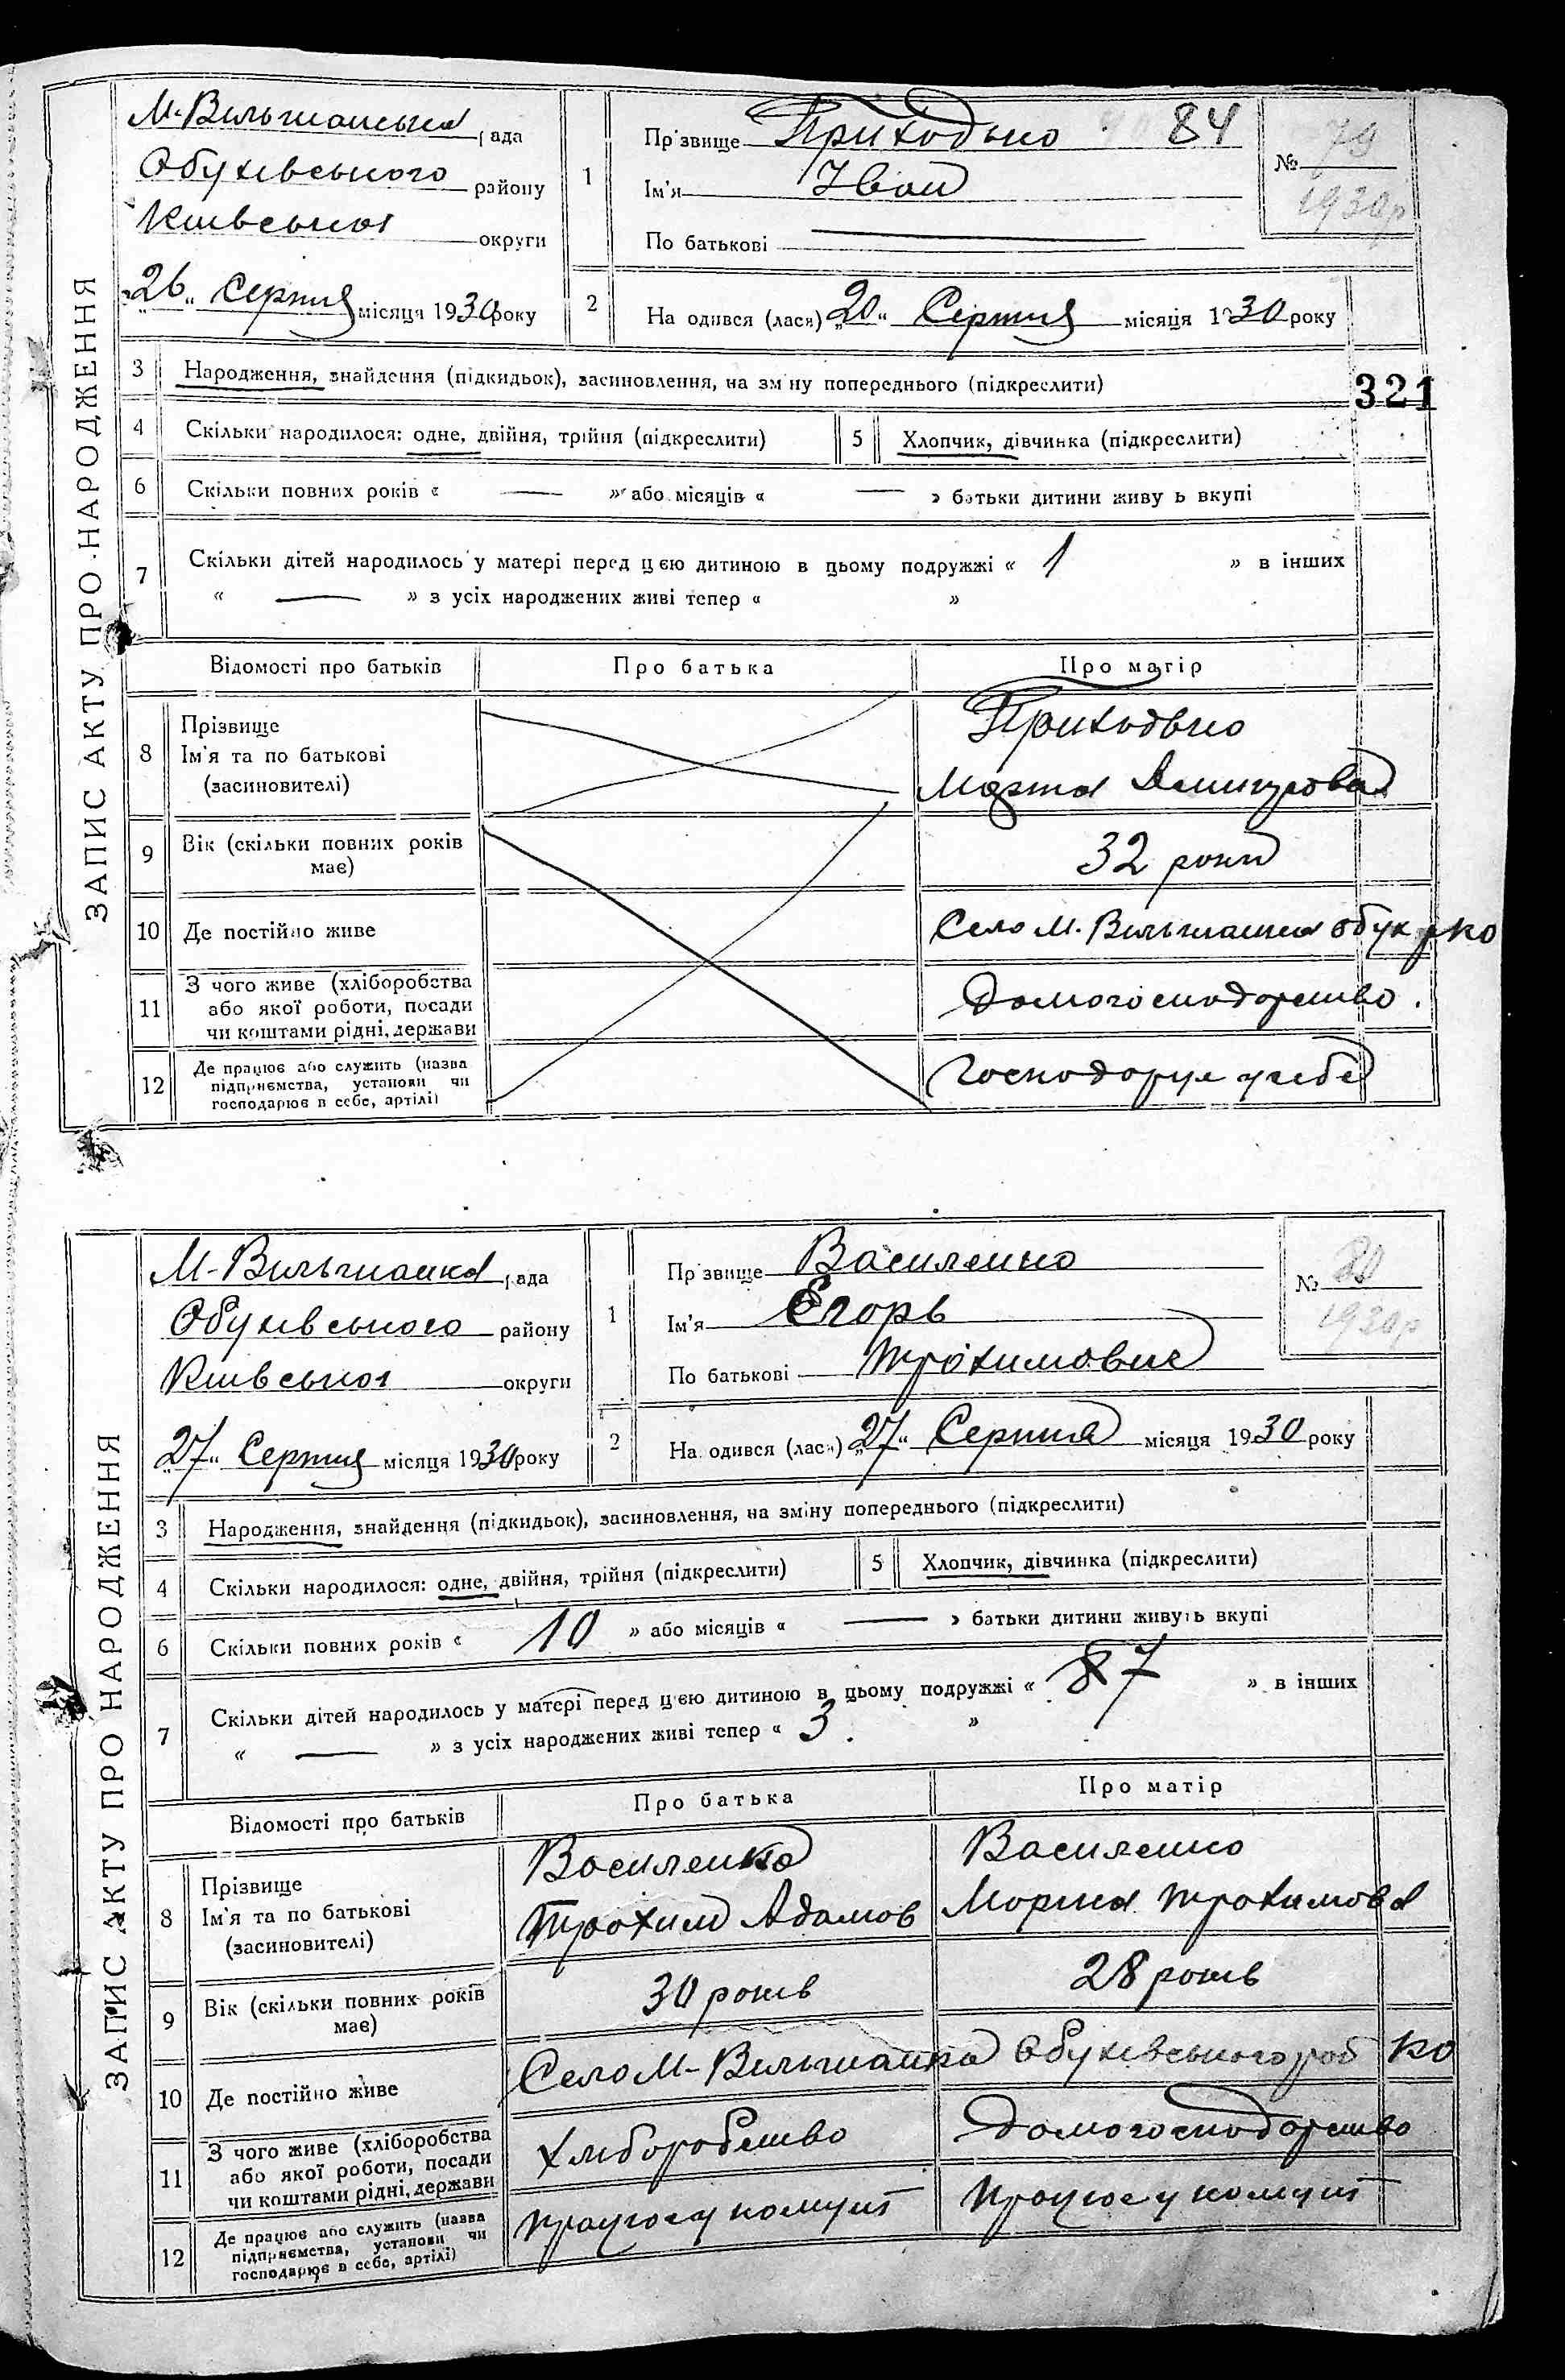 ЗАПИС АКТУ ПРО НАРОДЖЕННЯ
М-Вільшанська рада
Обухівського району
Київської округи
"26" Серпня місяця 1930 року
1
Прізвище Приходько 84
Ім'я Іван
По батькові
№ 79
1930р
2
На одився (лася) "20" Серпня місяця 1930 року
321
3 Народження, знайдення (підкидьок), засиновлення, на зміну попереднього (підкреслити)
4 Скільки народилося: одне, двійня, трійня (підкреслити)
5 Хлопчик, дівчинка (підкреслити)
6 Скільки повних років « — » або місяців « — » батьки дитини живу ь вкупі
7 Скільки дітей народилось у матері перед цією дитиною в цьому подружжі « 1 » в інших
« — » з усіх народжених живі тепер « »
Відомості про батьків Про батька Про матір
8 Прізвище
Ім'я та по батькові
(засиновителі)
Приходько
9 Вік (скільки повних років
має)
32 роки
10 Де постійно живе
Село М. Вільшанка Обух р ко
11 З чого живе (хліборобства
або якої роботи, посади
чи коштами рідні, держави
Домогосподарство.
12 Де працює або служить (назва
підприємства, установи чи
господарює в себе, артілі)
Господарує у себе
ЗАПИС АКТУ ПРО НАРОДЖЕННЯ
М-Вільшанка рада
Обухівського району
Київської округи
"27" Серпня місяця 1930 року
1
Прізвище Василенко
Ім'я Егорь
По батькові Трохимович
№ 80
1930р
2
На одився (лася) "27" Серпня місяця 1930 року
3 Народження, знайдення (підкидьок), засиновлення, на зміну попереднього (підкреслити)
4 Скільки народилося: одне, двійня, трійня (підкреслити)
5 Хлопчик, дівчинка (підкреслити)
6 Скільки повних років « 10 » або місяців « — » батьки дитини живуть вкупі
7 Скільки дітей народилось у матері перед цією дитиною в цьому подружжі « 7 » в інших
« — » з усіх народжених живі тепер « 3. »
Відомості про батьків Про батька Про матір
8 Прізвище
Ім'я та по батькові
(засиновителі)
Василенко
Трохим Адамов
Василенко
Марина Трохимова
9 Вік (скільки повних років
має)
30 років
28 років
10 Де постійно живе
Село М-Вільшанка Обухівського рай ко
11 З чого живе (хліборобства
або якої роботи, посади
чи коштами рідні, держави
Хліборобство
Домогосподарство
12 Де працює або служить (назва
підприємства, установи чи
господарює в себе, артілі)
Працює у комуні
Працює у комуні